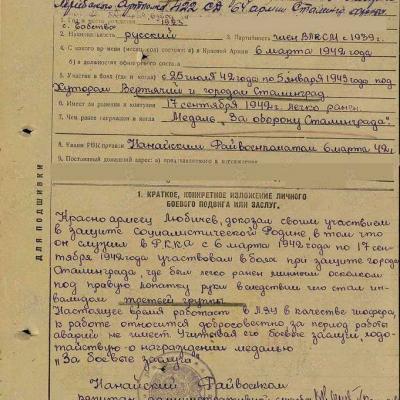 422 СД 64 армии Сталинг
1. Год и место рождения 1923
с.
2. Национальность русский 3. Партийность член ВЛКСМ с 1939 г.
4. С какого времени состоит в Красной Армии 6 марта 1942 года
5. Участие в боях (где и когда) с 25 июля 42 года по 5 января 1943 года под
Хутором Вертячий и городом Сталинград
6. Имеет ли ранения и контузии 17 сентября 1942 г. легко ранен.
7. Чем ранее награжден Медаль „За оборону Сталинграда".
8. Каким РВК призван Нанайским Райвоенкоматом 6 марта 42 г.
9. Постоянный домашний адрес: а) представляемого к награждению
ДЛЯ ПОДШИВКИ
1. КРАТКОЕ, КОНКРЕТНОЕ ИЗЛОЖЕНИЕ ЛИЧНОГО
БОЕВОГО ПОДВИГА ИЛИ ЗАСЛУГ.
Красноармеец Любичев, доказал своим участием
в защите Социалистической Родине, в том что
он служил в РККА с 6 марта 1942 года по 17 сен-
тября 1942 года участвовал в боях при защите города
Сталинграда, где был легко ранен минным осколком
под правую лопатку руки в следствии чего стал ин-
валидом третьей группы
Настоящее время работает в ЛЗУ в качестве шофера,
к работе относится добросовестно за период работы
аварий не имеет. Учитывая его боевые заслуги, хода-
тайствую о награждении медалью
„За боевые заслуги"
Нанайский Райвоенком
капитан административной службы